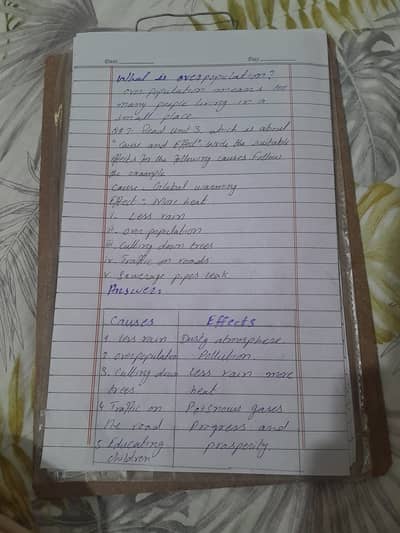 Date
Day
What is overpopulation?
over population means to
many people living in a
small place
No 7. Read Unit 3 which is about
"Cause and Effect" write the suitable
effects for the following causes follow
the example
Cause - Global warming
Effect - More heat
i. Less rain
ii. over population
iii. Cutting down trees
iv. Traffic on roads
v. Sewerage pipes leak
Answer
Causes Effects
1. less rain Dusty atmosphere
2. overpopulation Pollution.
3. Cutting down less rain more
trees heat
4. Traffic on Poisnous gases
the road Progress and
5. Educating prosperity.
children